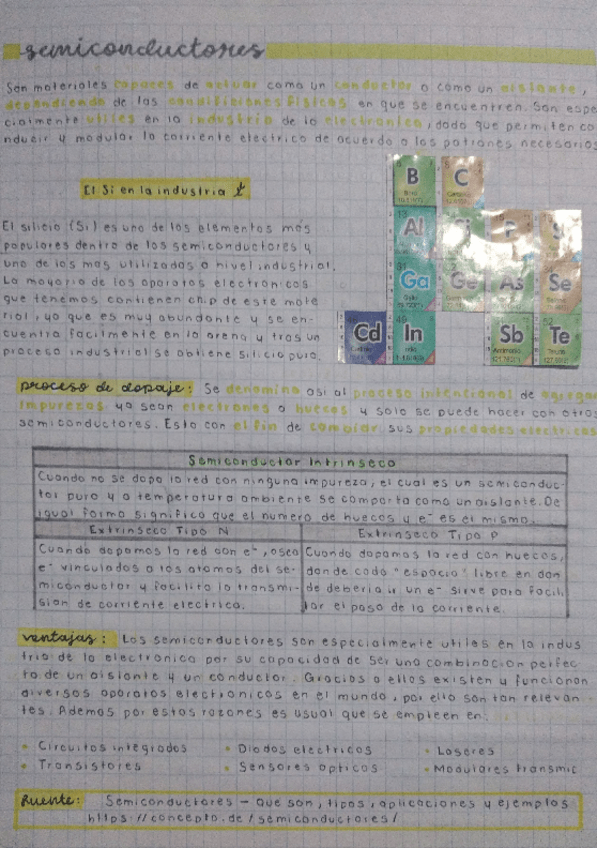 semiconductores
Son materiales capaces de actuar como un conductor o como un aislante,
dependiendo de las condiciones fisicas en que se encuentren. Son espe-
cialmente utiles en la industria de la electronica, dado que permiten co
nducir y modular la corriente electrico de acuerdo a los patrones necesarios
El Si en la industria
El silicio (Si) es uno de los elementos mas
populares dentro de los semiconductores y
uno de los mas utilizados a nivel industrial.
La mayoria de los aparatos electronicos
que tenemos contienen chip de este mate
rial, ya que es muy abundante y se en-
cuentra facilmente en la arena y tras un
proceso industrial se obtiene silicio puro.
B C
Al P S
Ga Ge As Se
Cd In Sb Te
proceso de dopaje: Se denomina asi al proceso intencional de agregar
impurezas ya sean electrones o huecos y solo se puede hacer con otros
semiconductores. Esto con el fin de cambiar sus propiedades electricas
Semiconductor Intrinseco
Cuando no se dopa la red con ninguna impureza, el cual es un semiconduc-
tor puro y a temperatura ambiente se comporta como un aislante. De
igual forma significa que el numero de huecos y e⁻ es el mismo.
Extrinseco Tipo N
Cuando dopamos la red con e⁻, osea
e⁻ vinculados a los atomos del se-
miconductor y facilita la transmi-
sion de corriente electrica.
Extrinseco Tipo P
Cuando dopamos la red con huecos,
donde cada "espacio" libre en don
de deberia ir un e⁻ sirve para facili
tar el paso de la corriente.
ventajas: Los semiconductores son especialmente utiles en la indus
tria de la electronica por su capacidad de ser una combinacion perfec
ta de un aislante y un conductor. Gracias a ellos existen y funcionan
diversos aparatos electronicos en el mundo, por ello son tan relevan -
tes. Ademas por estos razones es usual que se empleen en:
• Circuitos integrados • Diodos electricos • Laseres
• Transistores • Sensores opticos • Modulares transmic
Fuente: Semiconductores - Que son, tipos, aplicaciones y ejemplos
https://concepto.de/semiconductores/